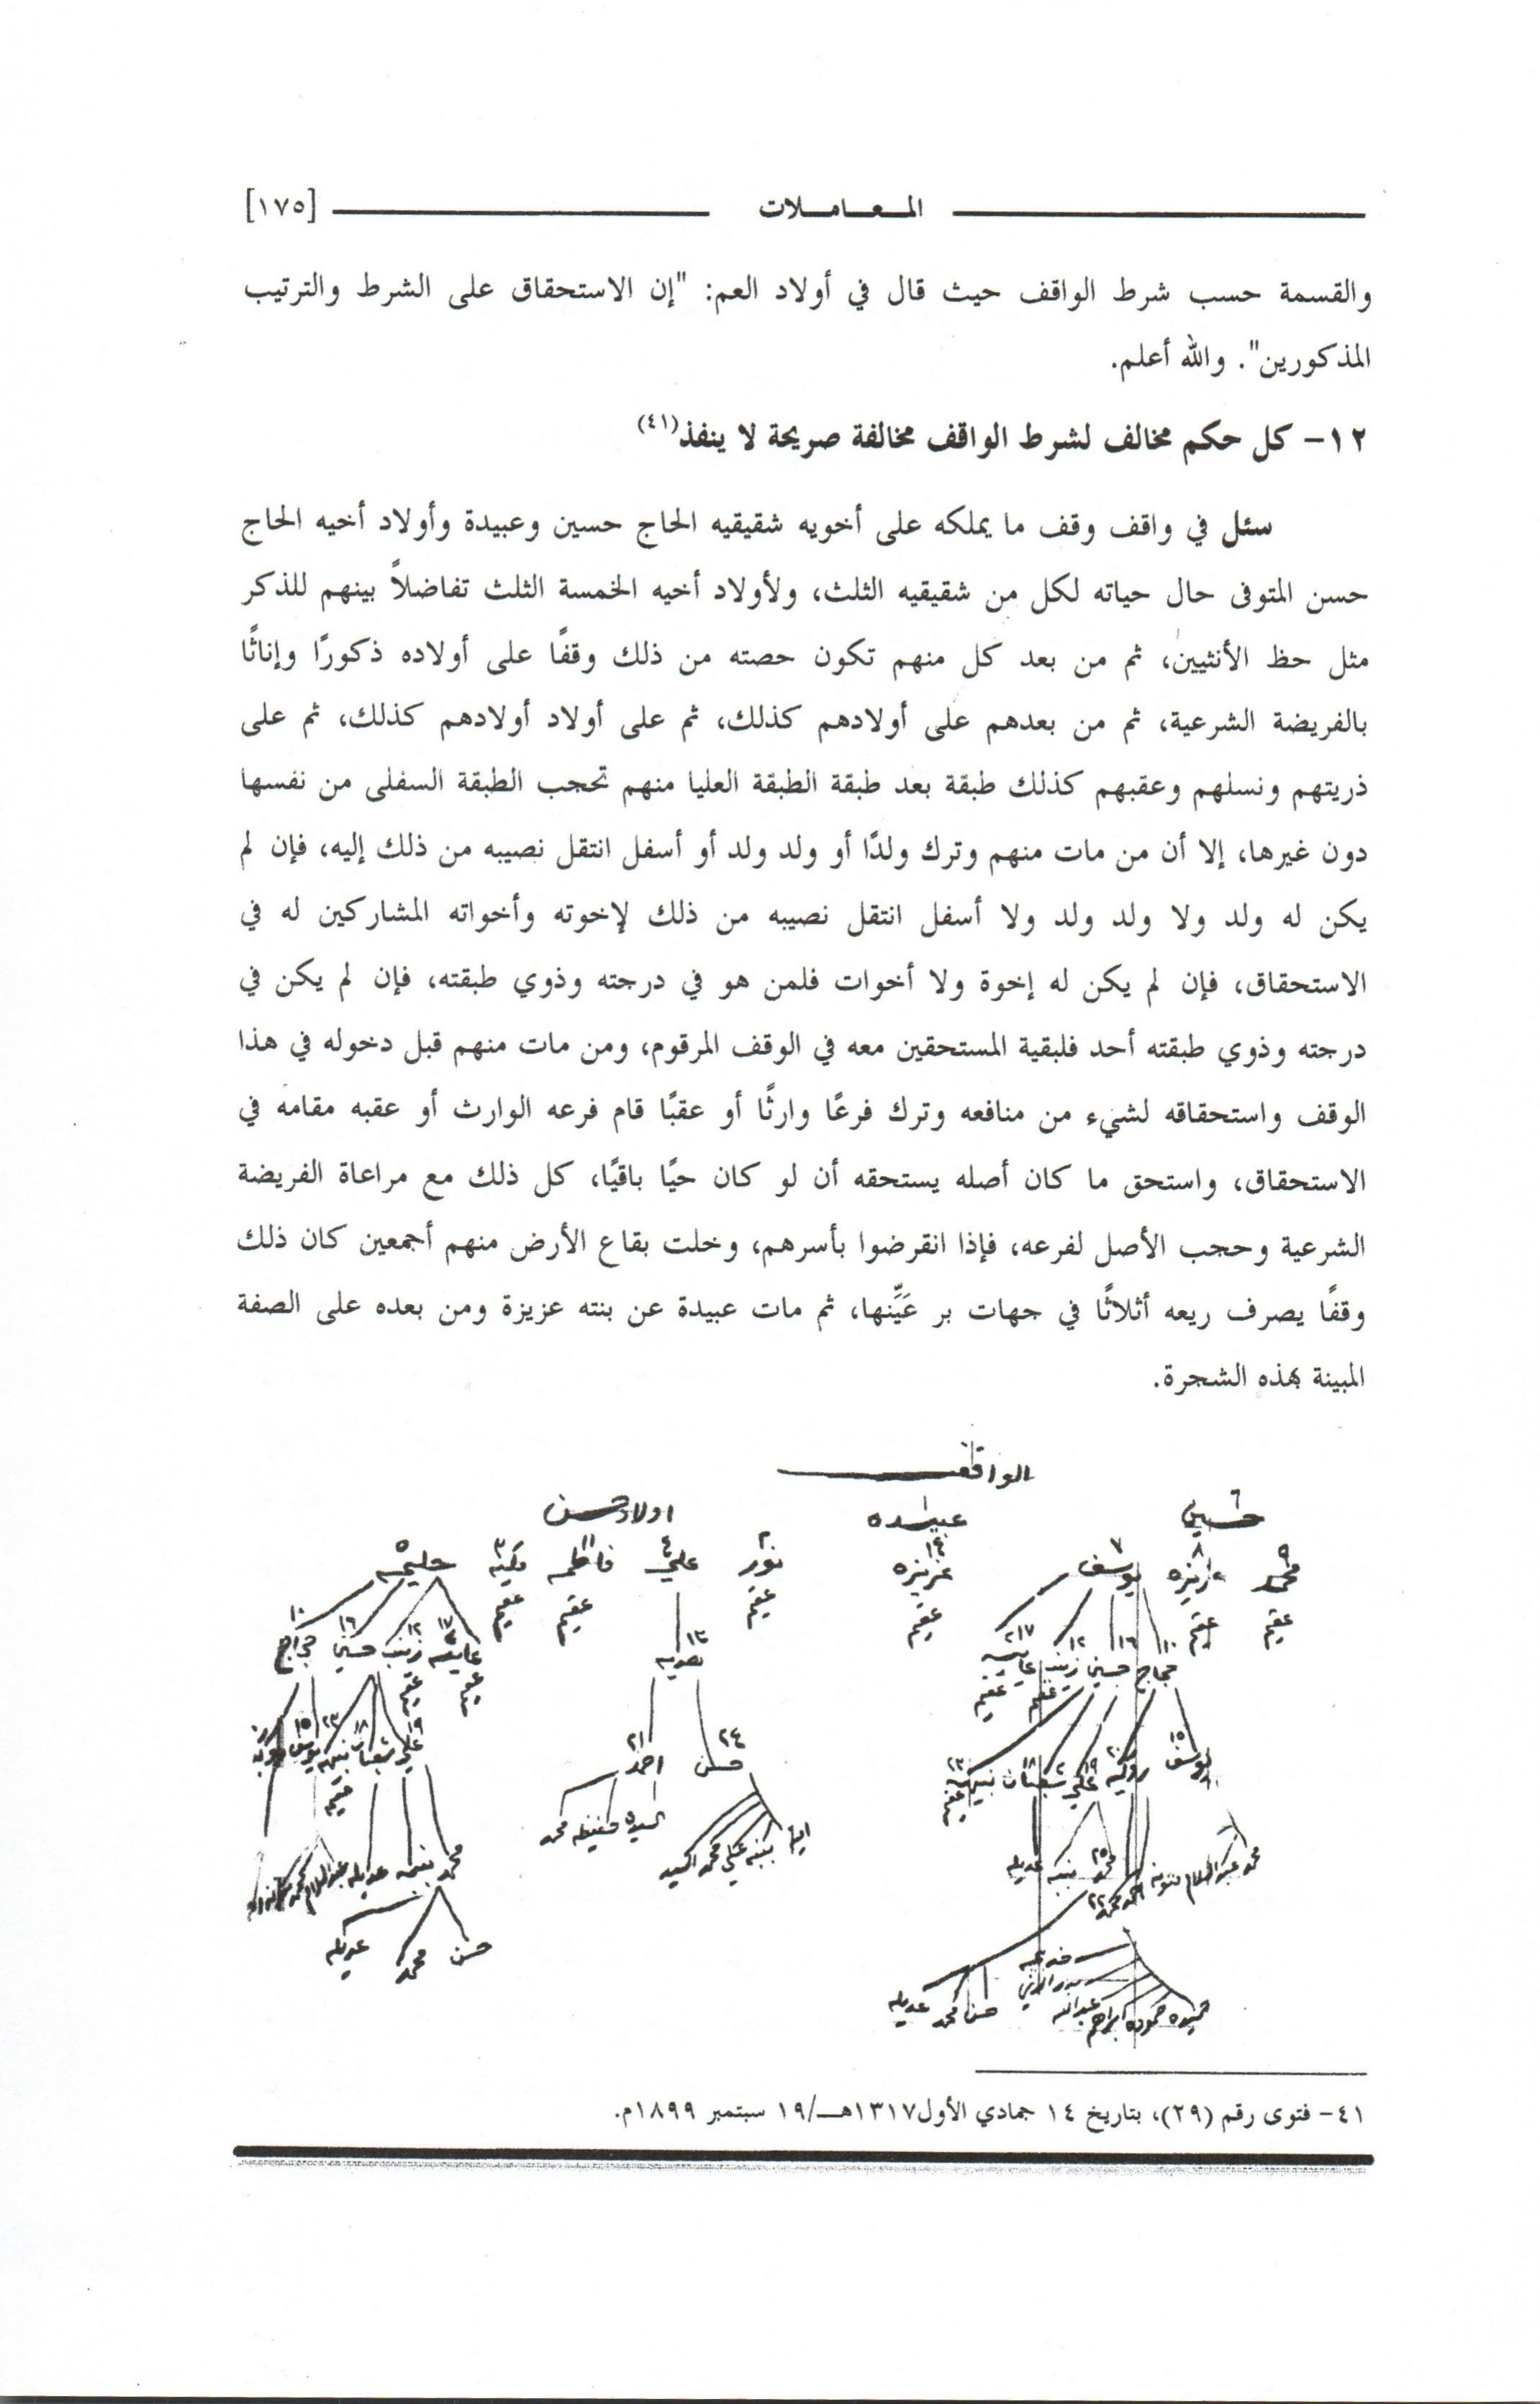 المعاملات [١٧٥]
والقسمة حسب شرط الواقف حيث قال في أولاد العم: "إن الاستحقاق على الشرط والترتيب
المذكورين". والله أعلم.
١٢- كل حكم مخالف لشرط الواقف مخالفة صريحة لا ينفذ(٤١)
سئل في واقف وقف ما يملكه على أخويه شقيقيه الحاج حسين وعبيدة وأولاد أخيه الحاج
حسن المتوفى حال حياته لكل من شقيقيه الثلث، ولأولاد أخيه الخمسة الثلث تفاضلاً بينهم للذكر
مثل حظ الأنثيين، ثم من بعد كل منهم تكون حصته من ذلك وقفًا على أولاده ذكورًا وإناثًا
بالفريضة الشرعية، ثم من بعدهم على أولادهم كذلك، ثم على أولاد أولادهم كذلك، ثم على
ذريتهم ونسلهم وعقبهم كذلك طبقة بعد طبقة الطبقة العليا منهم تحجب الطبقة السفلى من نفسها
دون غيرها، إلا أن من مات منهم وترك ولدًا أو ولد ولد أو أسفل انتقل نصيبه من ذلك إليه، فإن لم
يكن له ولد ولا ولد ولد ولا أسفل انتقل نصيبه من ذلك لإخوته وأخواته المشاركين له في
الاستحقاق، فإن لم يكن له إخوة ولا أخوات فلمن هو في درجته وذوي طبقته، فإن لم يكن في
درجته وذوي طبقته أحد فلبقية المستحقين معه في الوقف المرقوم، ومن مات منهم قبل دخوله في هذا
الوقف واستحقاقه لشيء من منافعه وترك فرعًا وارثًا أو عقبًا قام فرعه الوارث أو عقبه مقامه في
الاستحقاق، واستحق ما كان أصله يستحقه أن لو كان حيًا باقيًا، كل ذلك مع مراعاة الفريضة
الشرعية وحجب الأصل لفرعه، فإذا انقرضوا بأسرهم، وخلت بقاع الأرض منهم أجمعين كان ذلك
وقفًا يصرف ريعه أثلاثًا في جهات بر عَيِّنها، ثم مات عبيدة عن بنته عزيزة ومن بعده على الصفة
المبينة بهذه الشجرة.
الواقف
حسين عبيده اولاد حسن
محمد يوسف عزيزه نور علي فاطمه حليمه
عقيم عقيم عقيم عقيم عقيم عقيم
حجاج حسين زينب زينب حسين حجاج
عقيم عقيم عقيم عقيم
يوسف علي شعبان حسن احمد علي
محمد عبد السلام محمد عديله علي محمد السيد السيده حفيظه محمد محمد عديله
حميده حموده ابراهيم عبدالله حسن محمد عديله حسن محمد عديله
٤١- فتوى رقم (٢٩)، بتاريخ ١٤ جمادي الأول١٣١٧هـ/١٩ سبتمبر ١٨٩٩م.